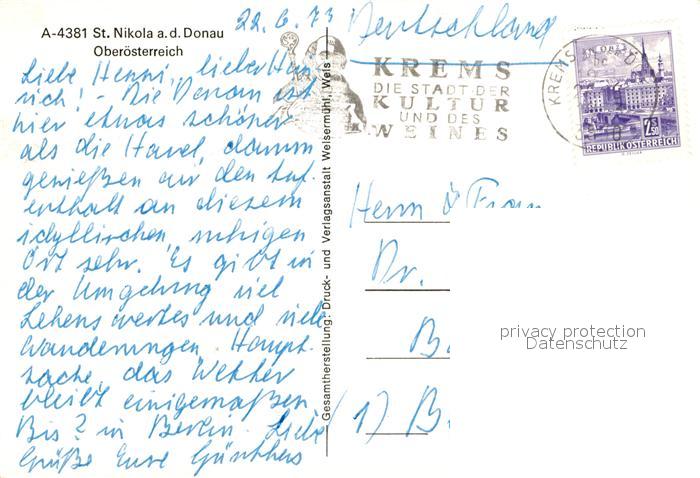 A-4381 St. Nikola a.d. Donau
Oberösterreich
22.6.73
Liebe Henni, lieber Hein
rich! - Die Donau ist
hier etwas schöner
als die Havel, darum
genießen wir den Auf-
enthalt an diesem
idyllischen, ruhigen
Ort sehr. Es gibt in
der Umgebung viel
Sehenswertes und viele
Wanderungen. Haupt-
sache, das Wetter
bleibt einigermaßen
Bis? in Berlin. Liebe
Grüße Eure Günthers
Gesamtherstellung: Druck- und Verlagsanstalt Welsermühl, Wels
Deutschland
KREMS
DIE STADT DER
KULTUR
UND DES
WEINES
KREMS AN DER D
2.50
REPUBLIK ÖSTERREICH
Herrn & Frau
Dr.
B.
1) B.
privacy protection
Datenschutz